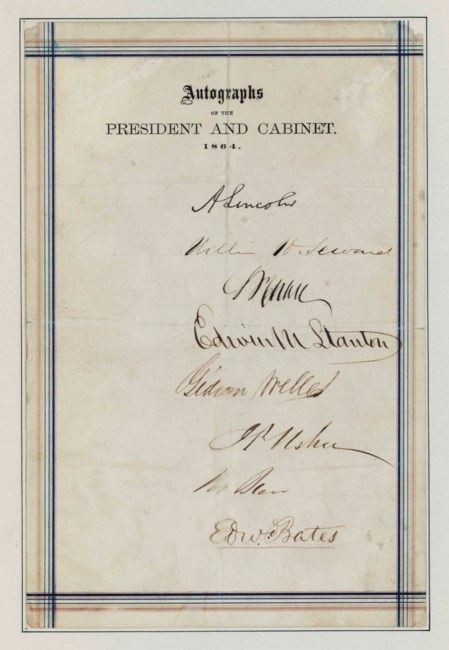 Autographs
OF THE
PRESIDENT AND CABINET.
1864.
A Lincoln
William H. Seward
Edwin M Stanton
Gideon Welles
J P Usher
Edw. Bates